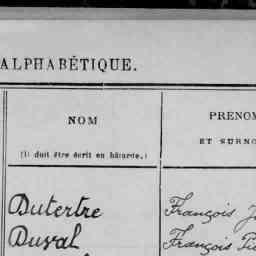 ALPHABÉTIQUE.
NOM
(Il doit être écrit en bâtarde.)
PRENOM
ET SURNO
Dutertre
François J
Duval
François